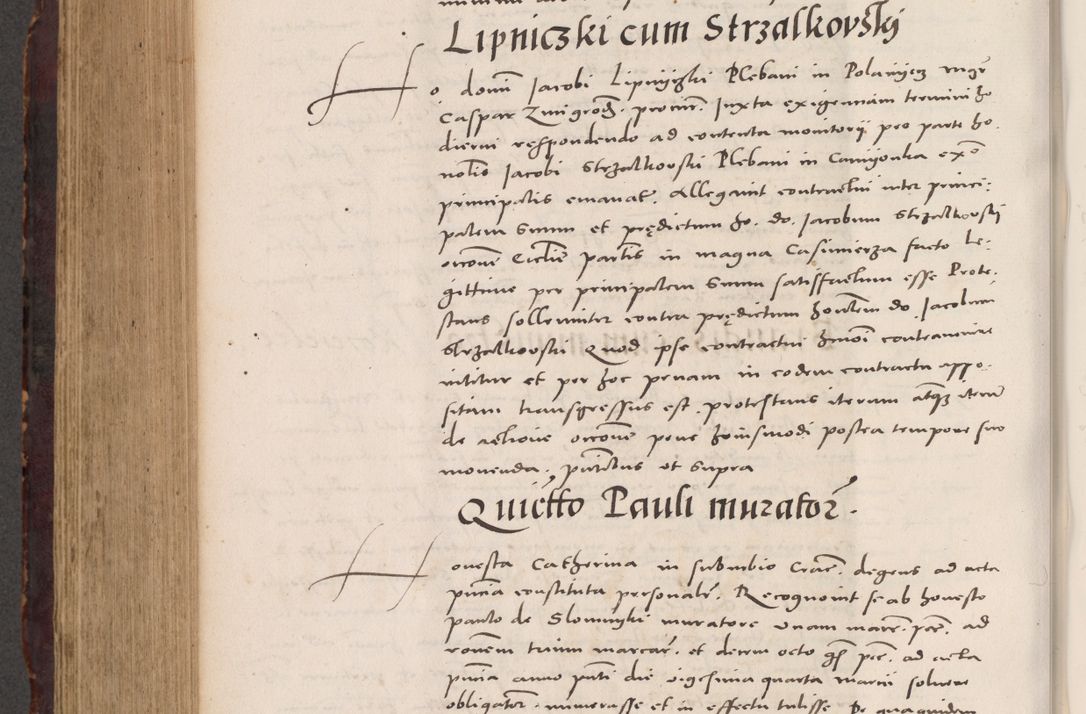 Lipniczki cum Strzalkovski
Ho. domi Iacobi Lipnyczki Plebani in Polanyecz mgr
Caspar Zmigrod. procur. Iuxta exigenciam termini ho
dierni respondendo ad contenta monitorij pro parte ho.
nobilis Iacobi Strzalkovski Plebani in Camyonka
principalis emanat. Allegavit contractui inter princi-
palem suum et prędictum ho. do. Iacobum Strzalkovski
in magna Casimierza facto le-
gittime per principalem suum satisfactum esse Prote.
stans sollenniter contra prędictum do. Iacobum
Strzalkovski Quod ipse contractui contravenire
nititur et per hoc penam in eodem contractu appo.
sitam transgressus est. protestans iterum atque iterum
de actione pene postea tempore suo
movenda. ut supra
Quietto Pauli murator.
Honesta Catherina in suburbio Crac. degens ad acta
constituta personalr. Recognovit se ab honesto
paulo de Slomnyki muratore unam marc. ad
ronem trium marcar. et decem octo ad acta
anno die vigesima quarta marcii solvere
obligator. numerasse et in effectu tulisse De qua quidem